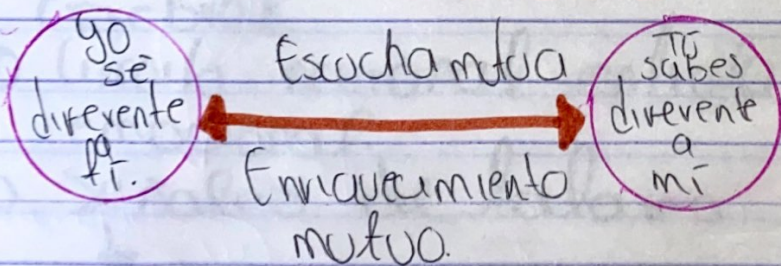 yo
sé
diferente
a
tí.
Escucha mutua
Enriquecimiento
mutuo.
Tú
sabes
diferente
a
mí